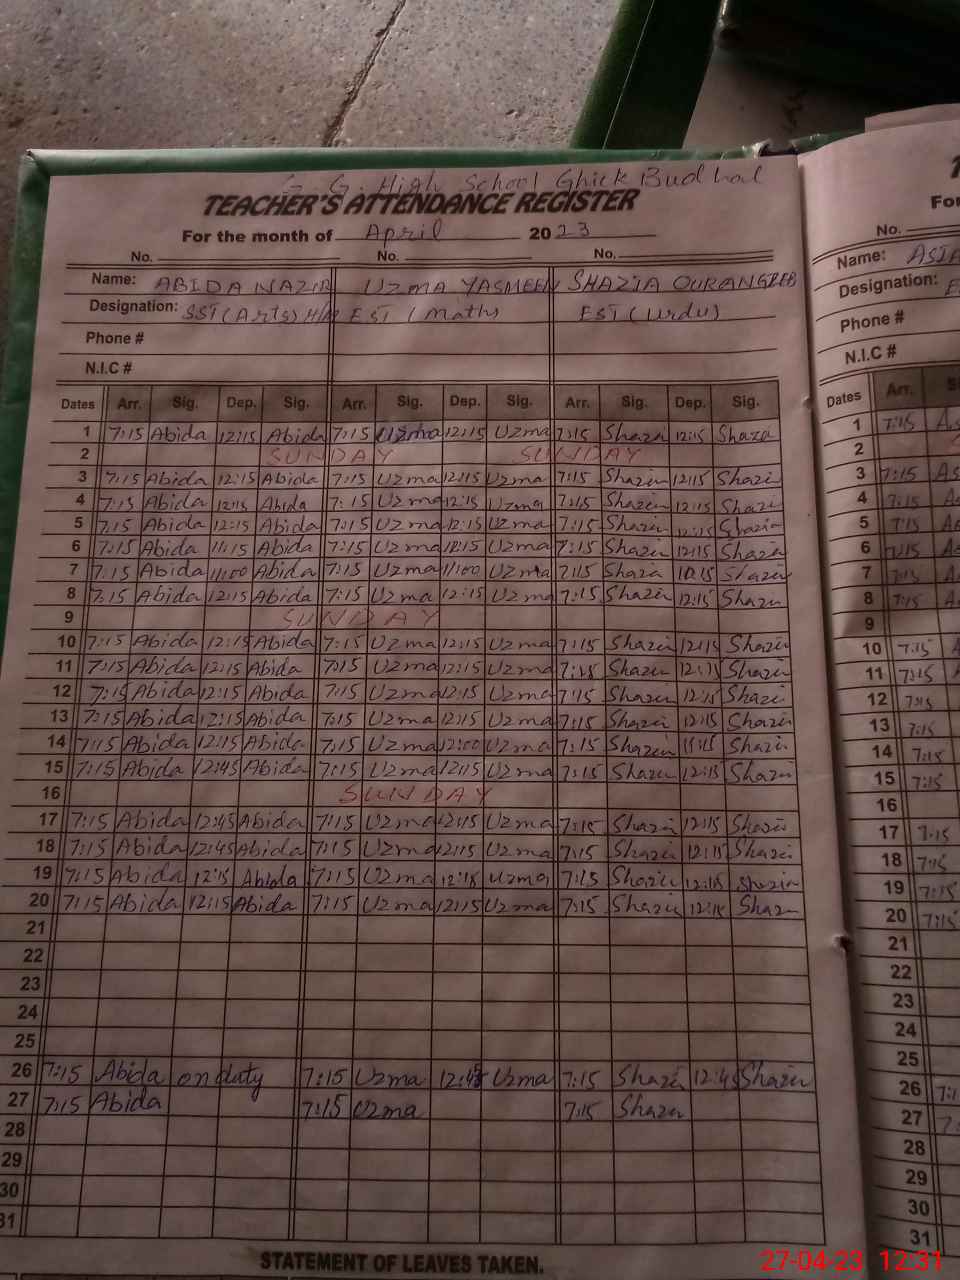 G. G. High School Ghick Budhal
TEACHER'S ATTENDANCE REGISTER
For the month of April 2023
No. No. No.
Name: ABIDA NAZIR UZMA YASMEEN SHAZIA OURANGZEB
Designation: SST (Arts) H/M EST (Maths) EST (Urdu)
Phone #
N.I.C #
Dates Arr. Sig. Dep. Sig. Arr. Sig. Dep. Sig. Arr. Sig. Dep. Sig.
1 7:15 Abida 12:15 Abida 7:15 Uzma 12:15 Uzma 7:15 Shazia 12:15 Shazia
2 SUNDAY SUNDAY
3 7:15 Abida 12:15 Abida 7:15 Uzma 12:15 Uzma 7:15 Shazia 12:15 Shazia
4 7:15 Abida 12:15 Abida 7:15 Uzma 12:15 Uzma 7:15 Shazia 12:15 Shazia
5 7:15 Abida 12:15 Abida 7:15 Uzma 12:15 Uzma 7:15 Shazia 12:15 Shazia
6 7:15 Abida 11:15 Abida 7:15 Uzma 12:15 Uzma 7:15 Shazia 12:15 Shazia
7 7:15 Abida 11:00 Abida 7:15 Uzma 11:00 Uzma 7:15 Shazia Shazia
8 7:15 Abida 12:15 Abida 7:15 Uzma 12:15 Uzma 7:15 Shazia 12:15 Shazia
9 SUNDAY
10 7:15 Abida 12:15 Abida 7:15 Uzma 12:15 Uzma 7:15 Shazia 12:15 Shazia
11 7:15 Abida 12:15 Abida 7:15 Uzma 12:15 Uzma 7:15 Shazia 12:15 Shazia
12 7:15 Abida 12:15 Abida 7:15 Uzma 12:15 Uzma 7:15 Shazia 12:15 Shazia
13 7:15 Abida 12:15 Abida 7:15 Uzma 12:15 Uzma 7:15 Shazia 12:15 Shazia
14 7:15 Abida 12:15 Abida 7:15 Uzma 12:00 Uzma 7:15 Shazia Shazia
15 7:15 Abida 12:45 Abida 7:15 Uzma 12:15 Uzma 7:15 Shazia 12:15 Shazia
16 SUNDAY
17 7:15 Abida 12:45 Abida 7:15 Uzma 12:15 Uzma 7:15 Shazia 12:15 Shazia
18 7:15 Abida 12:45 Abida 7:15 Uzma 12:15 Uzma 7:15 Shazia 12:15 Shazia
19 7:15 Abida 12:15 Abida 7:15 Uzma 12:15 Uzma 7:15 Shazia 12:15 Shazia
20 7:15 Abida 12:15 Abida 7:15 Uzma 12:15 Uzma 7:15 Shazia 12:15 Shazia
21
22
23
24
25
26 7:15 Abida on duty 7:15 Uzma 12:45 Uzma 7:15 Shazia 12:45 Shazia
27 7:15 Abida 7:15 Uzma 7:15 Shazia
28
29
30
31
STATEMENT OF LEAVES TAKEN.
No.
Name:
Designation:
Phone #
N.I.C #
Dates Arr.
1 7:15
2
3 7:15
4 7:15
5 7:15
6 7:15
7 7:15
8 7:15
9
10 7:15
11 7:15
12 7:15
13 7:15
14 7:15
15 7:15
16
17 7:15
18 7:15
19 7:15
20 7:15
21
22
23
24
25
26
27
28
29
30
31
27-04-23 12:31